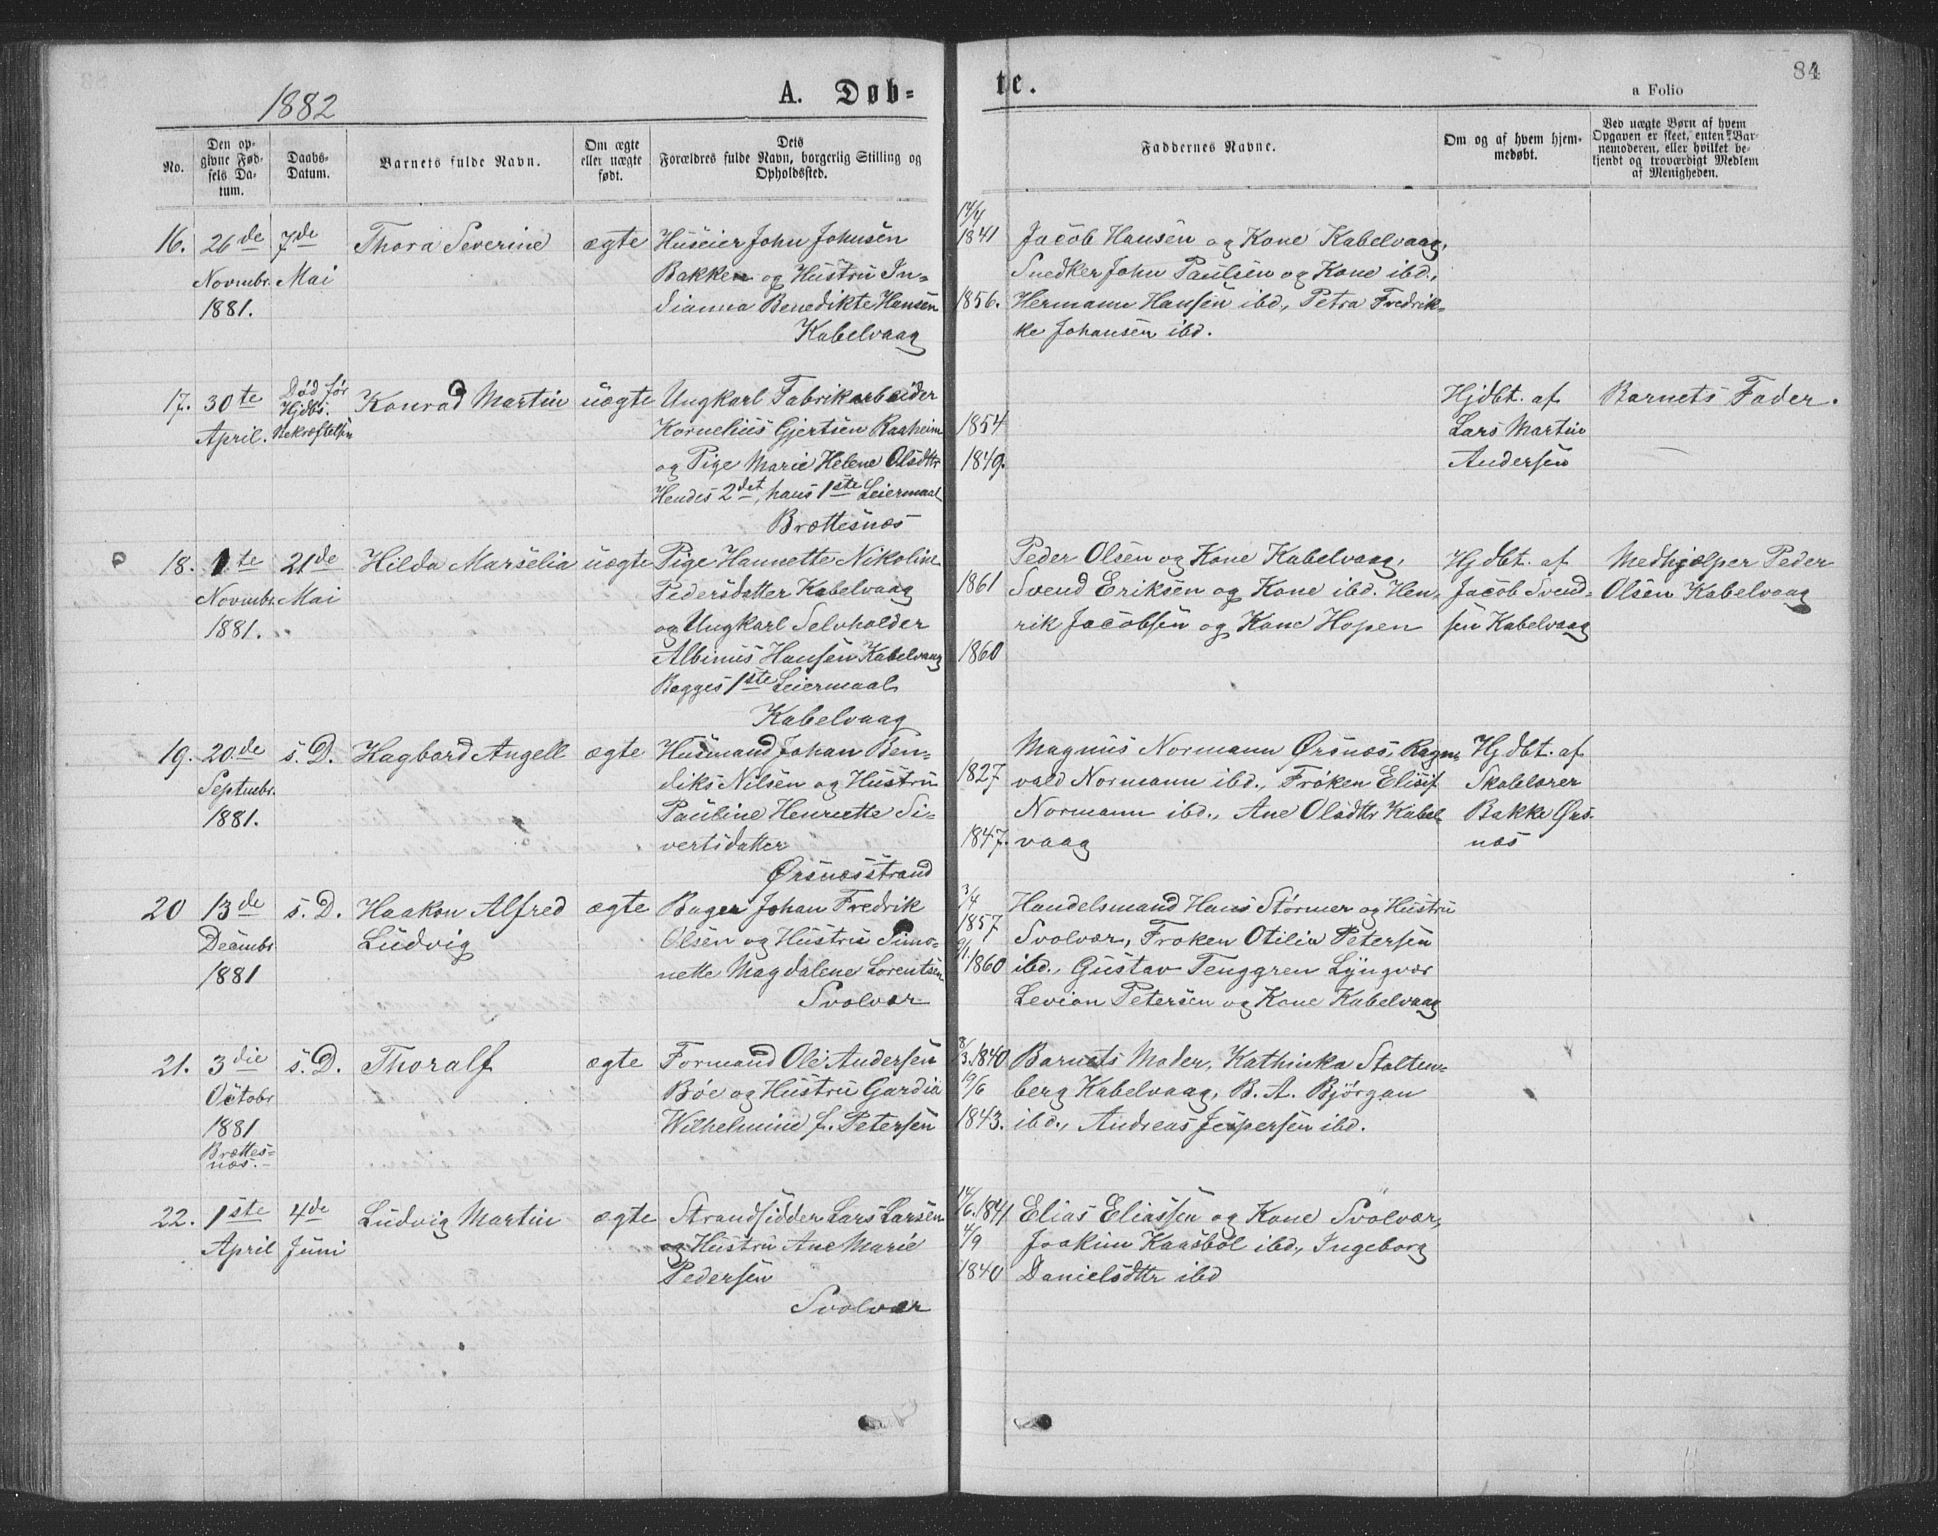 1882
A. Døb-
te.
84
a Folio
No.
Den op-
givne Fød-
sels Da-
tum.
Daabs-
Datum.
Barnets fulde Navn.
Om ægte
eller uægte
født.
Dets
Forældres fulde Navn, borgerlig Stilling og
Opholdssted.
Faddernes Navne.
Om og af hvem hjem-
medøbt.
Ved uægte Børn af hvem
Opgaven er skeet, enten Bar-
nemoderen, eller hvilket be-
kjendt og troværdigt Medlem
af Menigheden.
16.
26de
Novmbr.
1881.
7de
Mai
Thora Severine
ægte
Huseier John Johnsen
Bakken og Hustru In-
dianna Benedikte Hansen
Kabelvaag
14/4
1841
1856.
Jacob Hansen og Kone Kabelvaag,
Snedker John Paulsen og Kone ibd.,
Hermann Hansen ibd., Petra Fredrik-
ke Johansen ibd.
17.
30te
April.
Død før
Hjdbs.
Bekræftelsen
Konrad Martin
uægte
Ungkarl Fabrikarbeider
Kornelius Gjertsen Raaheim
og Pige Marie Helene Olsdttr
Hendes 2det, hans 1ste Leiermaal
Brettesnæs
1854
1849.
Hjdbt. af
Lars Martin
Andersen
Barnets Fader.
18.
1te
Novmbr.
1881.
21de
Mai
Hilda Marselia
uægte
Pige Hannette Nikoline
Pedersdatter Kabelvaag
og Ungkarl Selvholder
Albinus Hansen Kabelvaag
Begges 1ste Leiermaal
Kabelvaag
1861
1860
Peder Olsen og Kone Kabelvaag,
Svend Eriksen og Kone ibd. Hen-
rik Jacobsen og Kone Hopen
Hjdbt. af
Jacob Svend-
sen Kabelvaag
Medhjælper Peder
Olsen Kabelvaag
19.
20.de
Septmbr.
1881.
s. D.
Hagbard Angell
ægte
Husmand Johan Ben-
diks Nilsen og Hustru
Pauline Henriette Si-
vertsdatter
Ørsnæsstrand
1827
1847.
Magnus Normann Ørsnæs, Ragn-
vald Normann ibd., Frøken Elisif
Normann ibd., Ane Olsdttr Kabel-
vaag
Hjdbt. af
Skolelærer
Bakke Ørs-
næs
20
13de
Decmbr.
1881
s. D.
Haakon Alfred
Ludvig
ægte
Bager Johan Fredrik
Olsen og Hustru Simo-
nette Magdalene Lorentsen
Svolvær
3/4
1857
9/1 1860
Handelsmand Hans Størmer og Hustru
Svolvær, Frøken Otilia Petersen
ibd., Gustav Tenggren Lyngvær
Levion Petersen og Kone Kabelvaag
21.
3die
October
1881
Brettes-
næs.
s. D.
Thoralf
ægte
Formand Ole Andersen
Bøe og Hustru Gardia
Wilhelmine f. Petersen
8/3.1840
19/6
1843.
Barnets Moder, Kathinka Stolten-
berg Kabelvaag, B. A. Bjørgan
ibd., Andreas Jespersen ibd.
22.
1ste
April
4de
Juni
Ludvig Martin
ægte
Strandsidder Lars Larsen
og Hustru Ane Marie
Pedersen
Svolvær
14/6.1841
4/9
1840
Elias Eliassen og Kone Svolvær,
Joakim Kaasbøl ibd., Ingeborg
Danielsdttr ibd